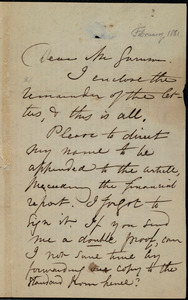 February 1881.
Dear Mr Garrison
I enclose the
remainder of the
& this is all.
Please to direct
my name to be
appended to the article,
preceding the financial
report. I forgot to
sign it. If you send
me a double proof, can
I not save time by
forwarding one copy to the
Standard from hence?